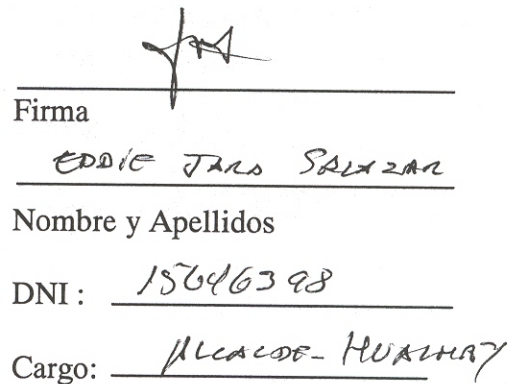 Firma
EDDIE JARA SALAZAR
Nombre y Apellidos
DNI : 15646398
Cargo: ALCALDE - HUALMAY